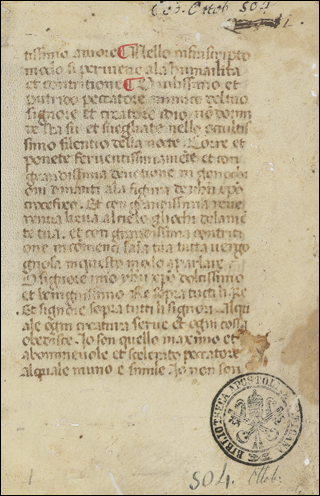 Cod. Ottob. 504
tissimo amore ¶ Nello infrascripto
modo si perviene ala humilita
et contritione ¶ O vilissimo et
putrido peccatore inimico del tuo
signore et creatore dio, nō dormi
re sta su et svegliate nello occultis
simo silentio dela nocte. Corre et
ponete ferventissimamēte et con
grandissima devotione in genochi
oni dinanti ala figura de yhū xp̄o
crocefixo. Et con grandissima reve
rentia leva al cielo gliochi dela mē
te tua. et con grandissima contriti
one incomenci la tua vergo
gnosa in questo modo a parlare.
O signore mio yhū xp̄o dolcissimo
et benignissimo. Re sopra tucti li Re
Et signore sopra tutti li signori. Al qu
ale ogni creatura serve et ogni cossa
obedisce. Io son quello maximo et
abominevole et scelerato peccatore
al quale niuno e simile. Io non son
BIBLIOTHECA APOSTOLICA VATICANA
504. Ottob.